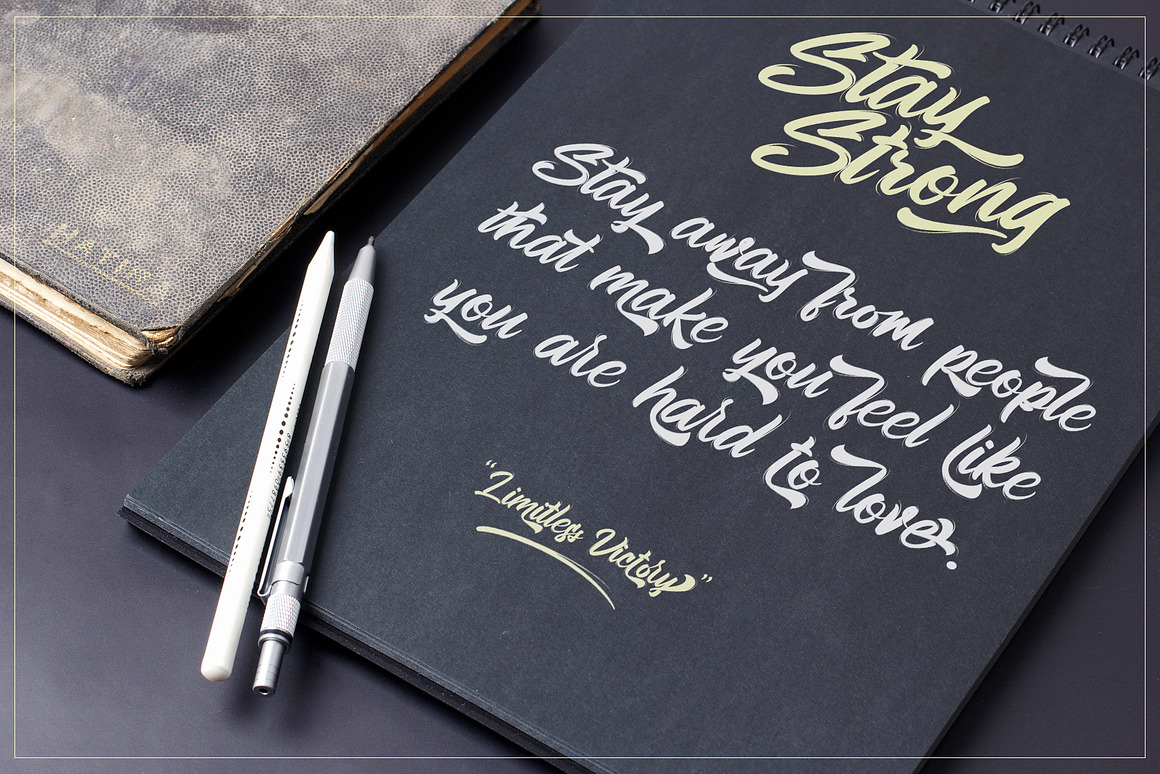 Stay
Strong
Stay away from people
that make you feel like
you are hard to love.
“Limitless Victory”